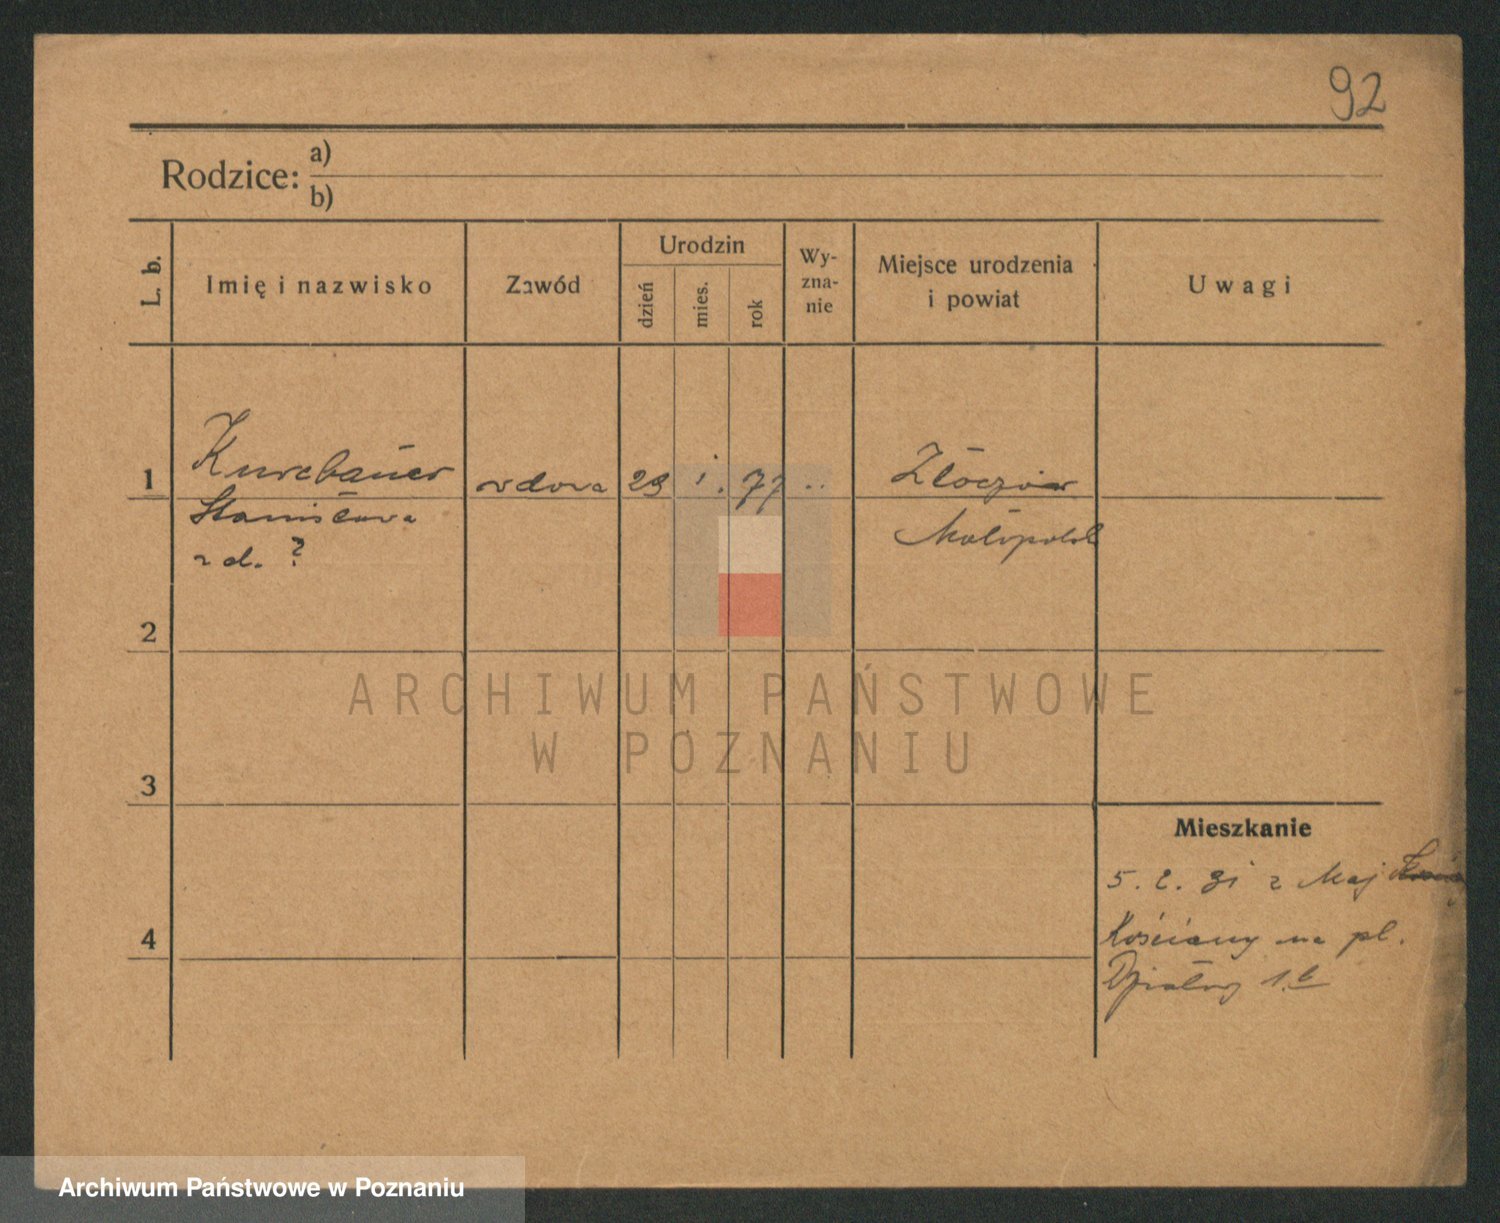 92
Rodzice: a)
b)
L. b.
Imię i nazwisko
Zawód
Urodzin
dzień
mies.
rok
Wy-
zna-
nie
Miejsce urodzenia
i powiat
Uwagi
1
wdowa 29 i. 77 ..
Złoczów
Stanisława
Małopolsk
z d. ?
2
ARCHIWUM PAŃSTWOWE
W POZNANIU
3
Mieszkanie
5. 2. 31 z Maj
4
Kościany na pl.
Działowy 1.b
Archiwum Państwowe w Poznaniu